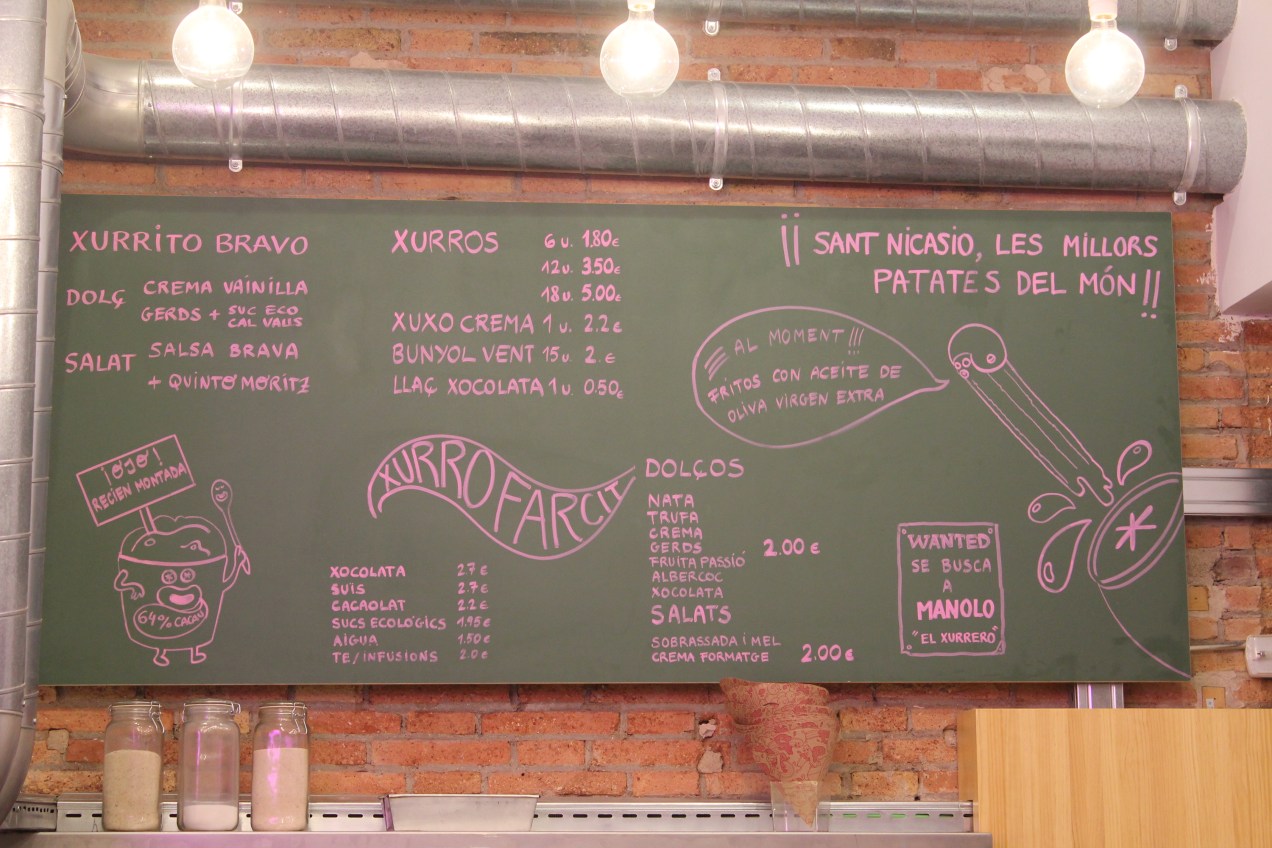 XURRITO BRAVO
DOLÇ CREMA VAINILLA
GERDS + SUC ECO
CAL VALLS
SALAT SALSA BRAVA
+ QUINTO MORITZ
XURROS 6 u. 1.80€
12 u. 3.50€
18 u. 5.00€
XUXO CREMA 1 u. 2.2€
BUNYOL VENT 15 u. 2.€
LLAÇ XOCOLATA 1 u. 0.50€
¡¡ SANT NICASIO, LES MILLORS
PATATES DEL MÓN!!
AL MOMENT!!!
FRITOS CON ACEITE DE
OLIVA VIRGEN EXTRA
¡OJO!
RECIEN MONTADA
64% CACAU
XURRO FARCIT
XOCOLATA 2.7€
SUÍS 2.7€
CACAOLAT 2.2€
SUCS ECOLÒGICS 1.95€
AIGUA 1.50€
TE/INFUSIONS 2.0€
DOLÇOS
NATA
TRUFA
CREMA
GERDS 2.00€
FRUITA PASSIÓ
ALBERCOC
XOCOLATA
SALATS
SOBRASSADA I MEL
CREMA FORMATGE 2.00€
WANTED
SE BUSCA
A
MANOLO
"EL XURRERO"